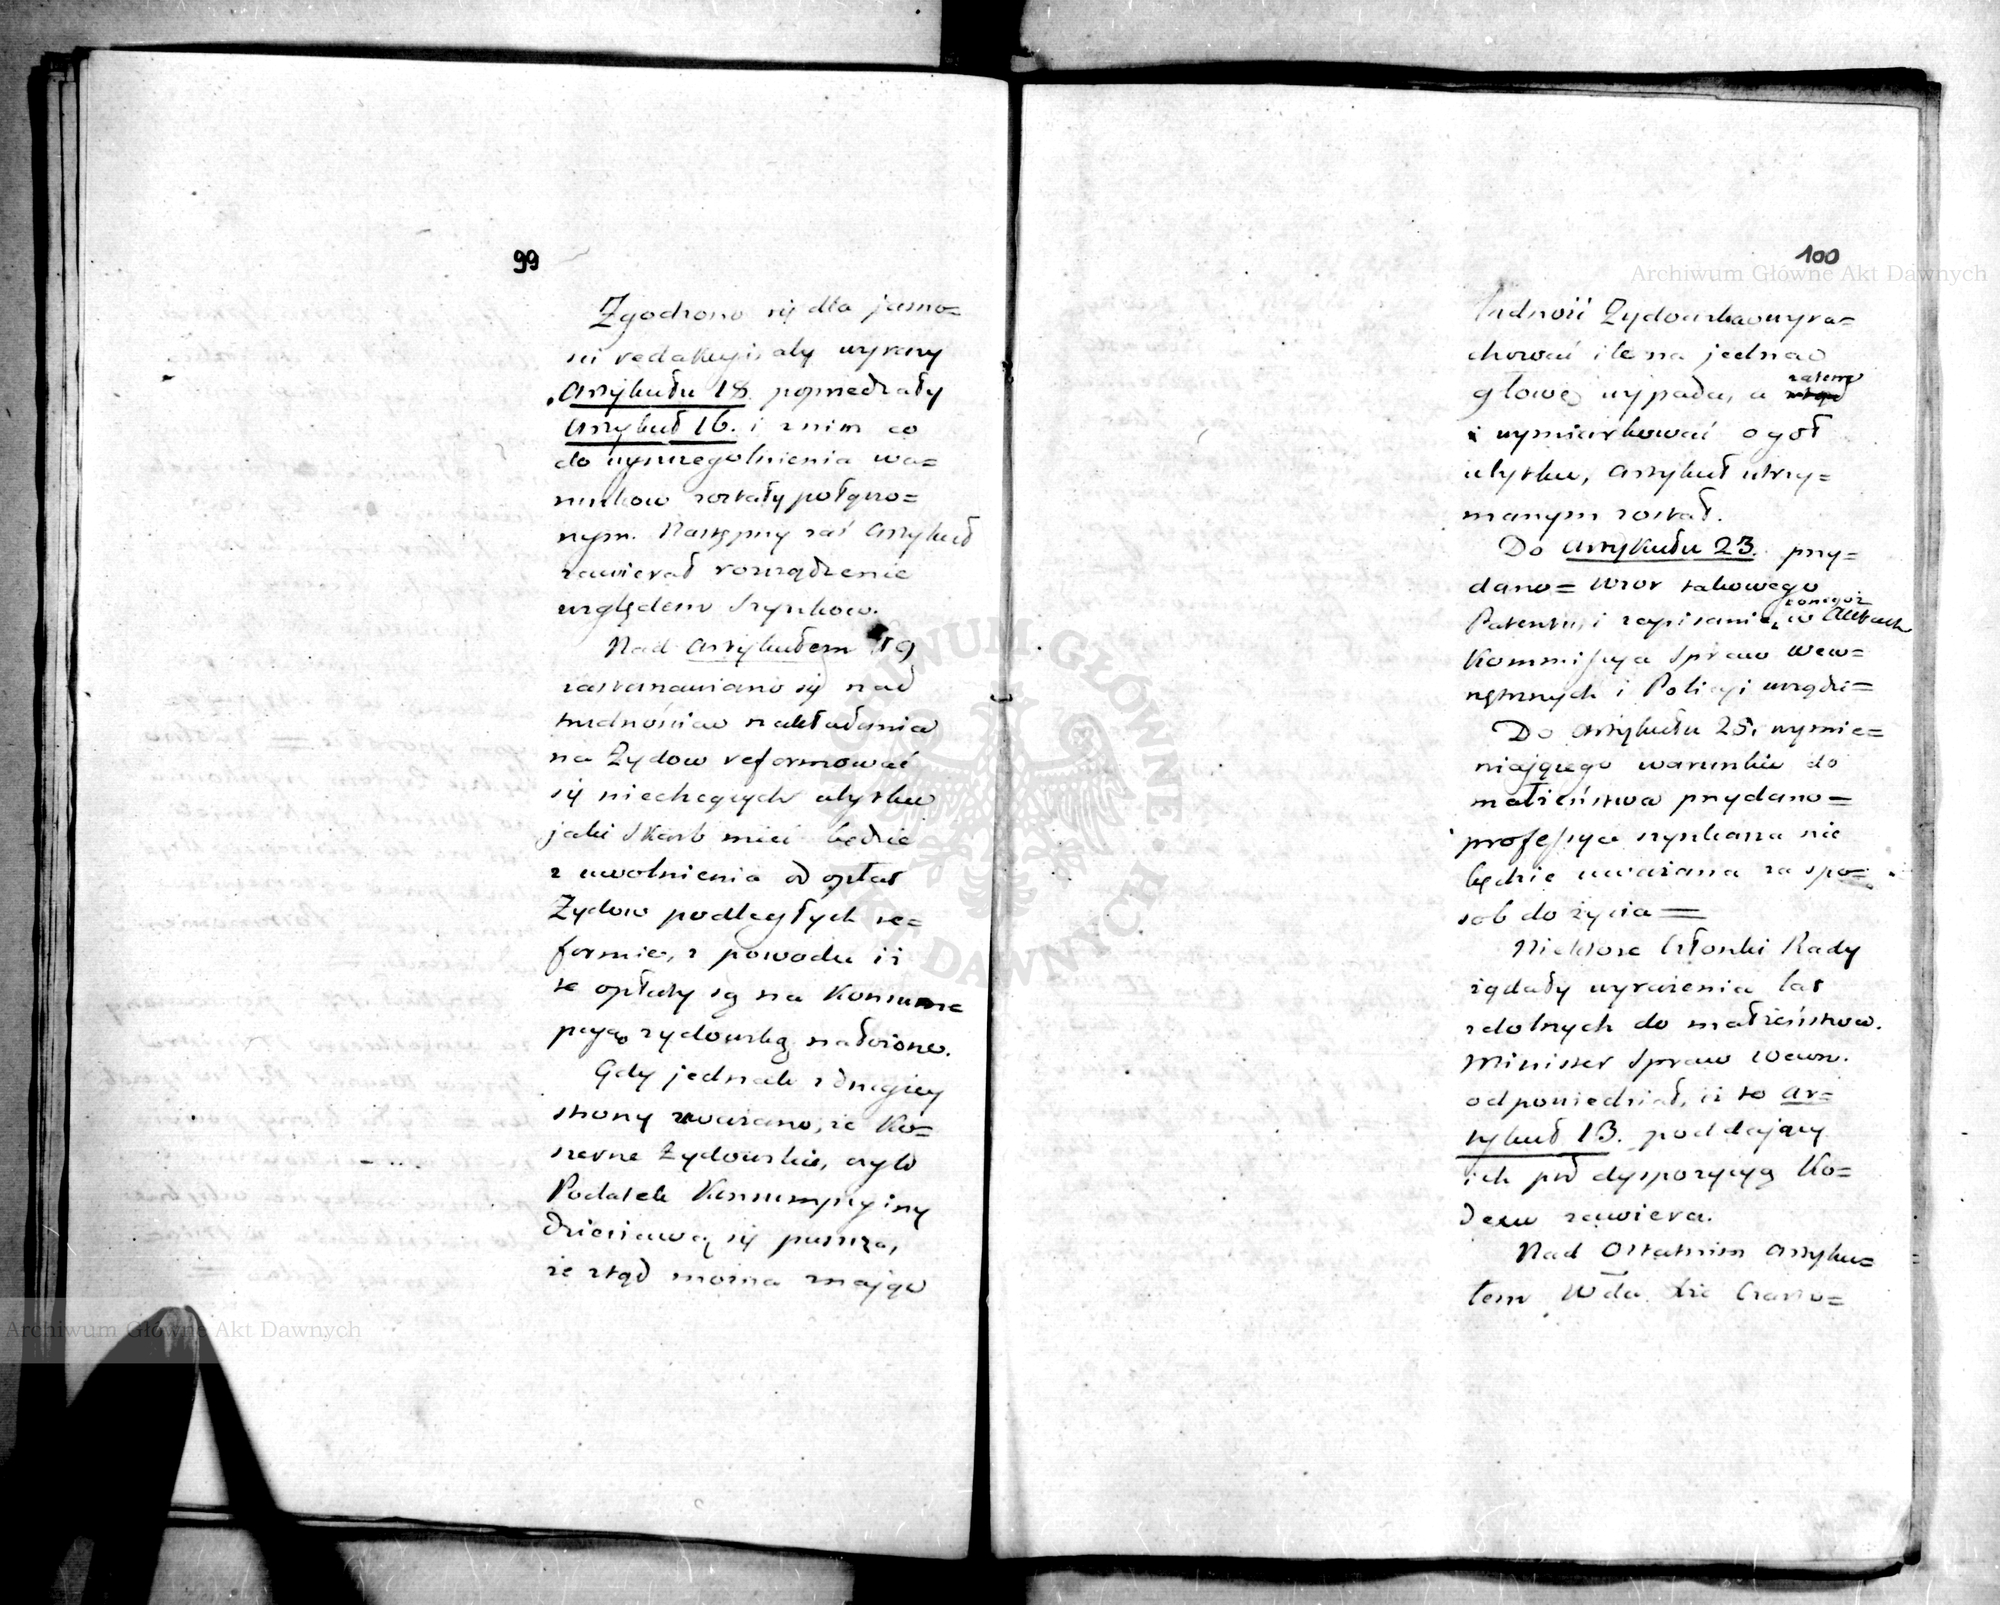 99
Zgodzono się dla jasno=
ści redakcyi, aby wyrazy
Artykułu 18. poprzedzały
Artykuł 16. i z nim co
do wyszczegolnienia wa=
runkow zostały połączo=
nym. Następny zaś Artykuł
zawierał rozrządzenie
względem Szynkow.
Nad Artykułem 19
zastanawiano się nad
trudnością nakładania
na Żydow reformować
się niechcących użytku
jaki Skarb mieć będzie
z uwolnienia od opłat
Żydow podległych re=
formie, z powodu iż
te opłaty są na Konsume
pcyą żydowską nałożone.
Gdy jednak z drugiey
strony zważano, że Ko=
szerne Żydowskie, czyli
Podatek Konsumpcyiny
dzierżawą się puszcza,
że ztąd można znając
100
Archiwum Główne Akt Dawnych
ludność Żydowską wyra=
chować ile na jedną
głowę wypada, a zatem
i wymiarkować ogół
użytku, Artykuł utrzy=
manym został.
Do Artykułu 23. przy=
dano = wzor takowego
Patentu, i zapisanie, w Aktach
Kommissya Spraw Wew=
nętrznych i Policyi urządzi=
Do Artykułu 25. wymie=
niającego warunki do
małżeństwa przydano=
professya szynkarza nie
będzie uważana za spo=
sob do życia=
Niektóre Członki Rady
żądały wyrażenia lat
zdolnych do małżeństwa.
Minister Spraw Wewn.
odpowiedział, iż to Ar=
tykuł 13. poddający
ich pod dyspozycyą Ko=
dexu zawiera.
Nad Ostatnim Artyku=
łem
Archiwum Główne Akt Dawnych
ARCHIWUM GŁÓWNE AKT DAWNYCH